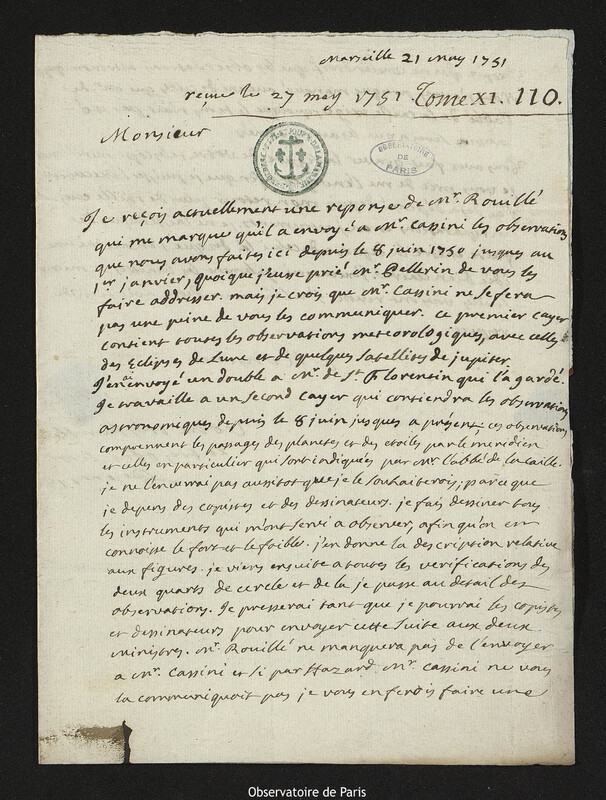 Marseille 21 may 1751
reçue le 27 may 1751 Tome XI. 110.
Monsieur
OBSERVATOIRE
DE
PARIS
Je reçois actuellement une reponse de Mr. Rouillé
qui me marque qu'il a envoyé a Mr. Cassini les observations
que nous avons faites ici depuis le 8 juin 1750 jusques au
1er janvier, quoique j'eusse prié Mr. Pellerin de vous les
faire addresser. mais je crois que Mr. Cassini ne se fera
pas une peine de vous les communiquer. ce premier cayer
contient toutes les observations meteorologiques, avec celles
des Eclipses de Lune et de quelques satellites de jupiter.
J'en ai envoyé un double a Mr. de St. Florentin qui l'a gardé.
Je travaille a un second cayer qui contiendra les observations
astronomiques depuis le 8 juin jusques a présent. ces observations
comprennent les passages des planetes et des etoiles par le meridien
et celles en particulier qui sont indiquées par Mr. l'abbé de la Caille.
je ne l'enverrai pas aussitot que je le souhaiterois, parce que
je depens des copistes et des dessinateurs. je fais dessiner tous
les instruments qui m'ont servi a observer, afin qu'on en
connoisse le fort et le foible. j'en donne la description relative
aux figures. je viens ensuite a toutes les verifications des
deux quarts de cercle et de la je passe au detail des
observations. Je presserai tant que je pourrai les copistes
et dessinateurs pour envoyer cette suite aux deux
Ministres. Mr. Rouillé ne manquera pas de l'envoyer
a Mr. Cassini et si par Hazard Mr. Cassini ne vous
la communiquoit pas je vous en ferois faire une
Observatoire de Paris